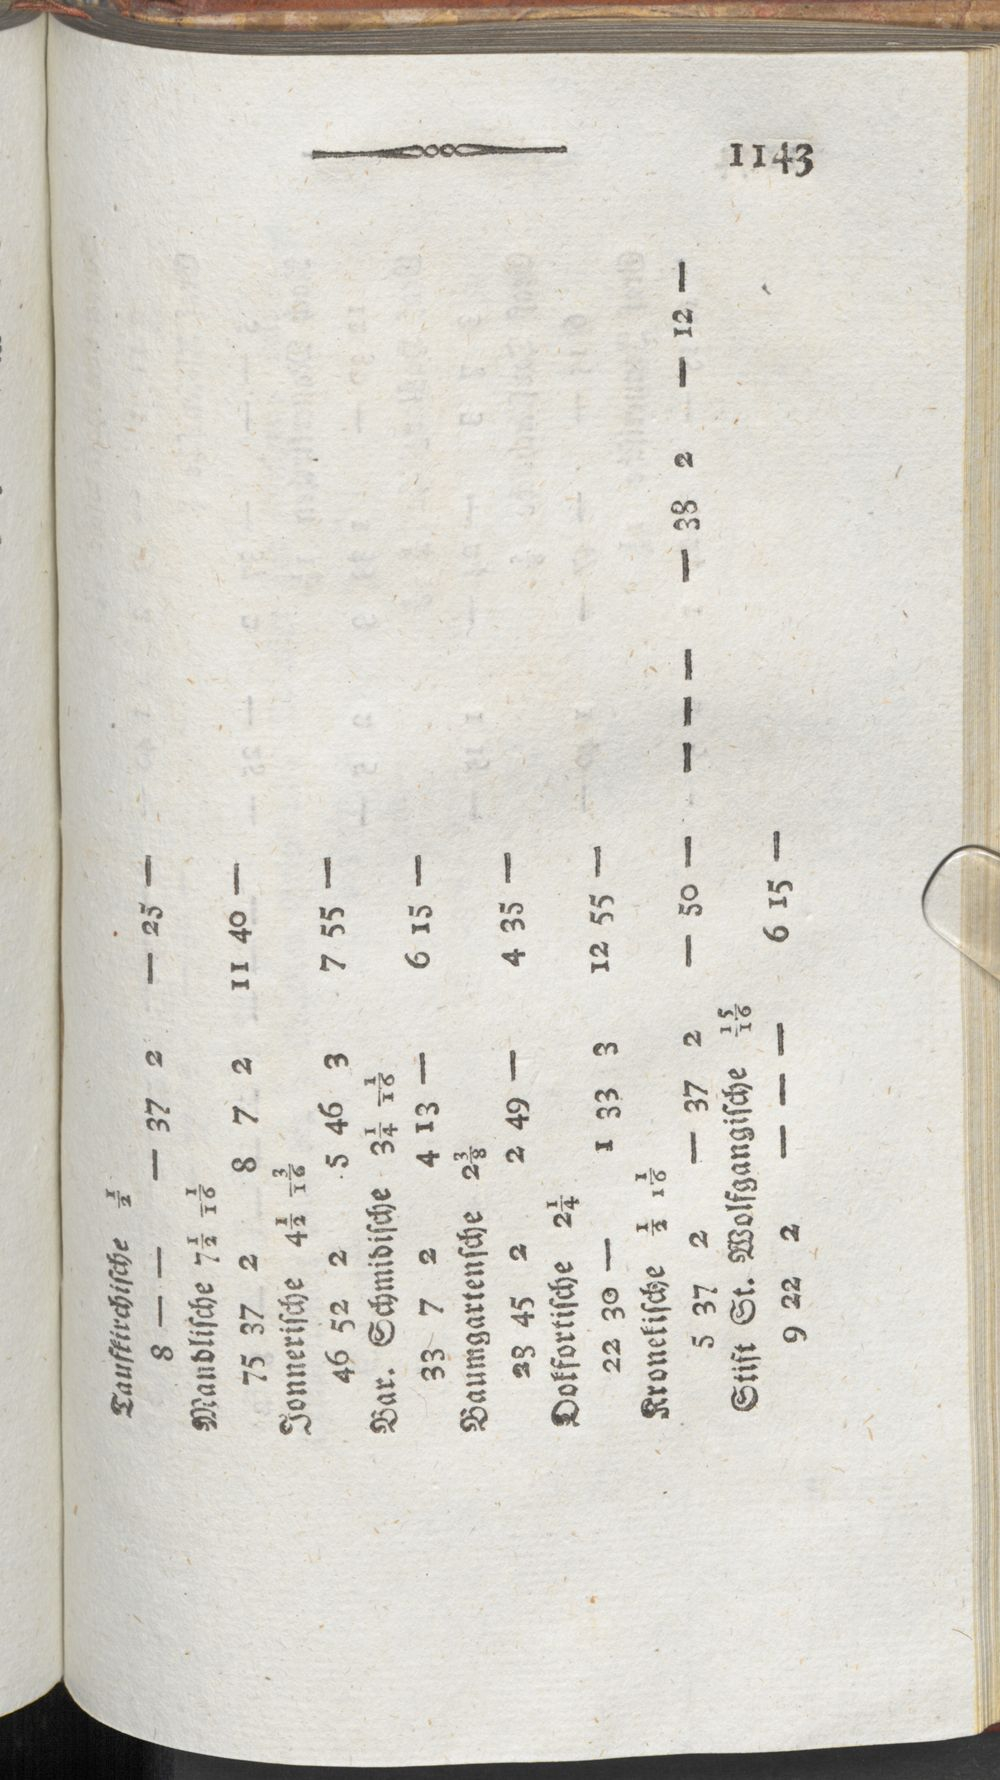 1143
Taufkirchische ½
8 — — — 37 2 — 25 —
Mandlische 7½ 1/16
75 37 2 8 7 2 11 40 —
Jonnerische 4½ 3/16
46 52 2 5 46 3 7 55 —
Bar. Schmidische 3¼ 1/16
33 7 2 4 13 — 6 15 —
Baumgartensche 2⅜
23 45 2 2 49 — 4 35 —
Dokfortische 2¼
22 30 — 1 33 3 12 55 —
Kronekische ½ 1/16
5 37 2 — 37 2 — 50 — — — — — 38 2 — 12 —
Stift St. Wolfgangische 15/16
9 22 2 — — — 6 15 —